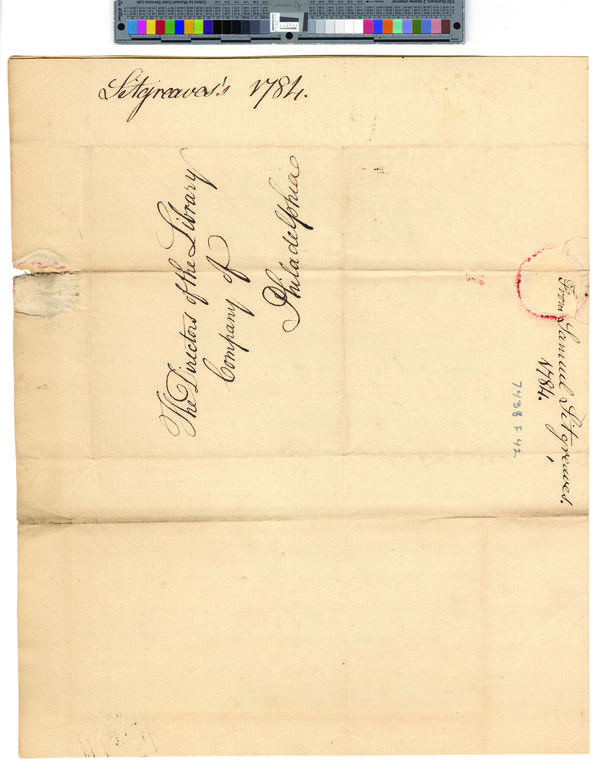 Sitgreaves's 1784.
The Directors of the Library
Company of
Philadelphia
From Samuel Sitgreaves.
1784.
7438 F 42